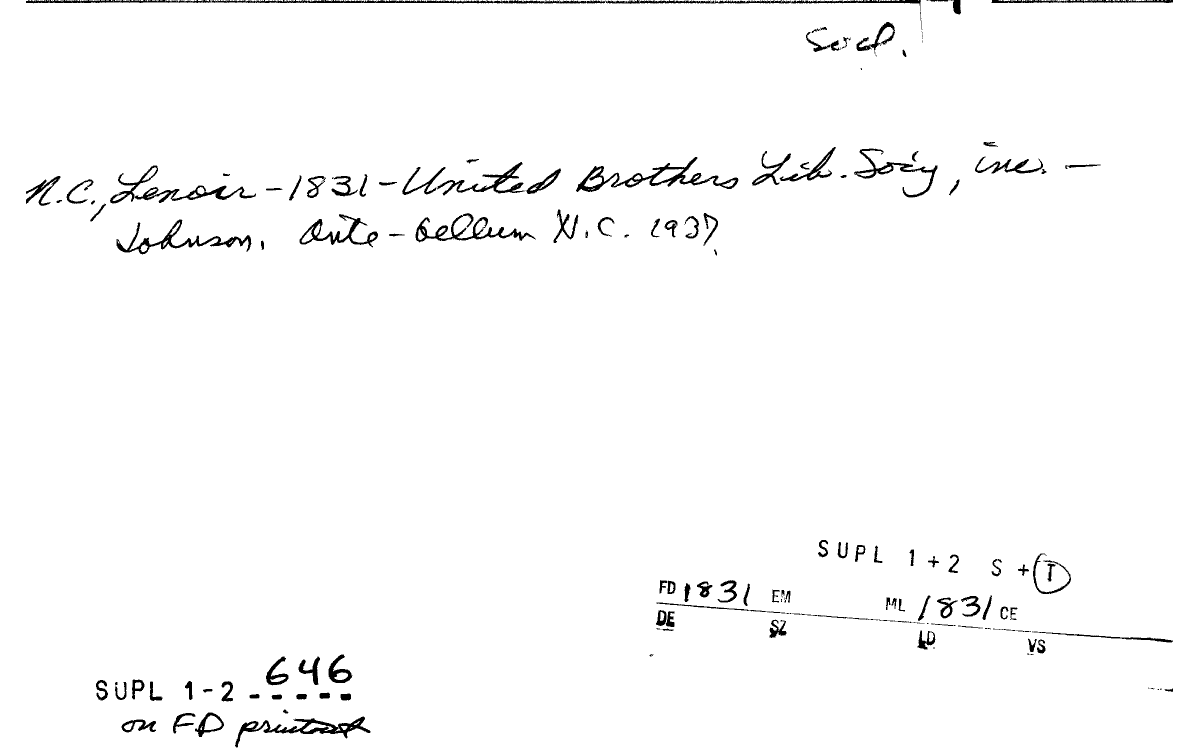 Socl.
N.C., Lenoir - 1831 - United Brothers Lib. Soc'y, inc. -
Johnson. Ante-bellum N.C. 1937.
SUPL 1+2 S + T
FD 1831 EM ML 1831 CE
DE SZ LD VS
SUPL 1-2 646
on FD printout